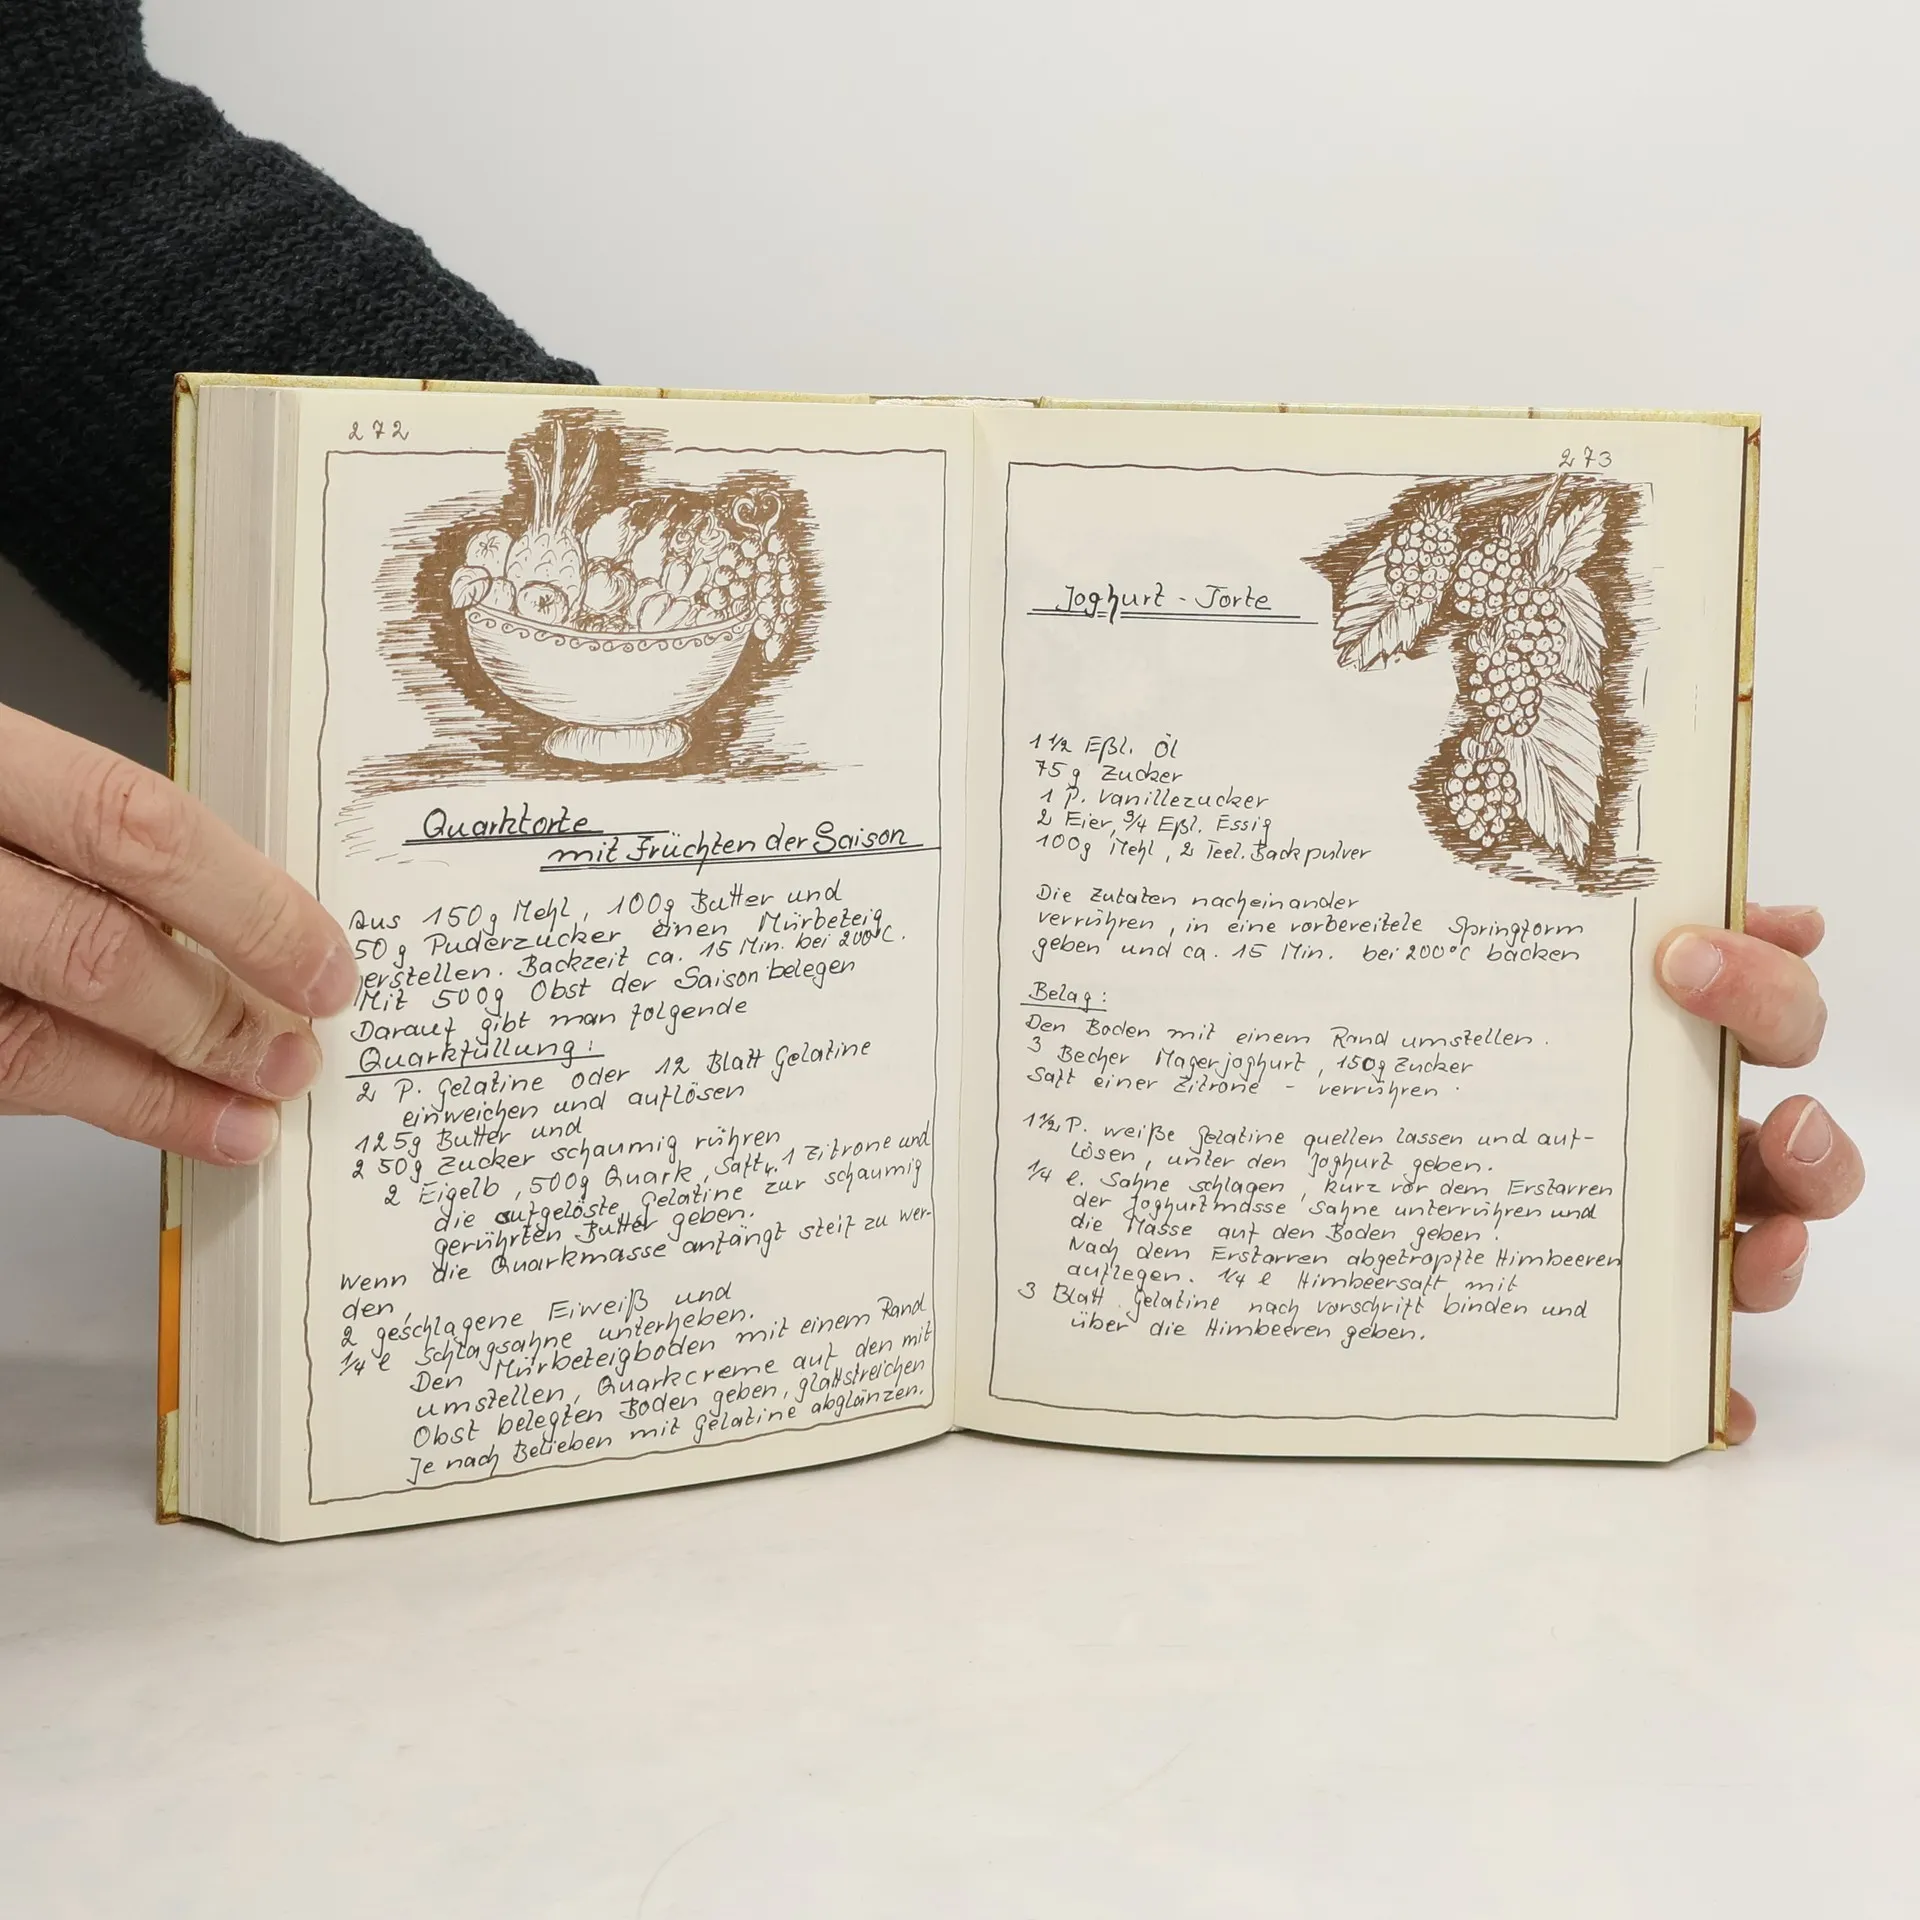 272
Quarktorte
mit Früchten der Saison
Aus 150g Mehl, 100g Butter und
50g Puderzucker einen Mürbeteig
erstellen. Backzeit ca. 15 Min. bei 200°C.
Mit 500g Obst der Saison belegen
Darauf gibt man folgende
Quarkfüllung:
2 P. Gelatine oder 12 Blatt Gelatine
einweichen und auflösen
125g Butter und
250g Zucker schaumig rühren
2 Eigelb, 500g Quark, Saft v. 1 Zitrone und
die aufgelöste Gelatine zur schaumig
gerührten Butter geben.
Wenn die Quarkmasse anfängt steif zu wer-
den,
2 geschlagene Eiweiß und
1/4 l Schlagsahne unterheben.
Den Mürbeteigboden mit einem Rand
umstellen, Quarkcreme auf den mit
Obst belegten Boden geben, glattstreichen
Je nach Belieben mit Gelatine abglänzen.
273
Joghurt-Torte
1 1/2 Eßl. Öl
75g Zucker
1 P. Vanillezucker
2 Eier, 3/4 Eßl. Essig
100g Mehl, 2 Teel. Backpulver
Die Zutaten nacheinander
verrühren, in eine vorbereitete Springform
geben und ca. 15 Min. bei 200°C backen
Belag:
Den Boden mit einem Rand umstellen.
3 Becher Magerjoghurt, 150g Zucker
Saft einer Zitrone - verrühren.
1 1/2 P. weiße Gelatine quellen lassen und auf-
lösen, unter den Joghurt geben.
1/4 l. Sahne schlagen, kurz vor dem Erstarren
der Joghurtmasse Sahne unterrühren und
die Masse auf den Boden geben.
Nach dem Erstarren abgetropfte Himbeeren
auflegen. 1/4 l Himbeersaft mit
3 Blatt Gelatine nach Vorschrift binden und
über die Himbeeren geben.